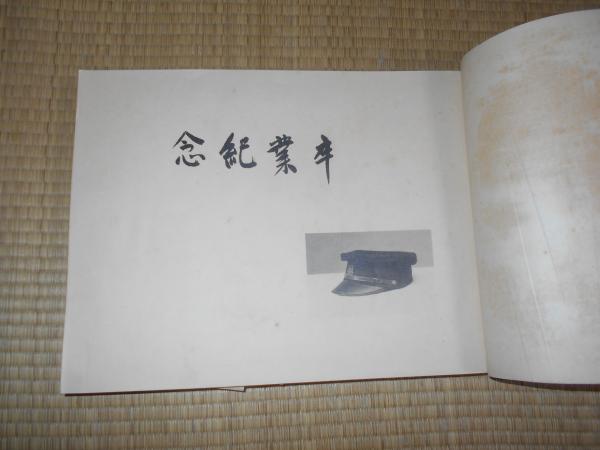 卒業紀念